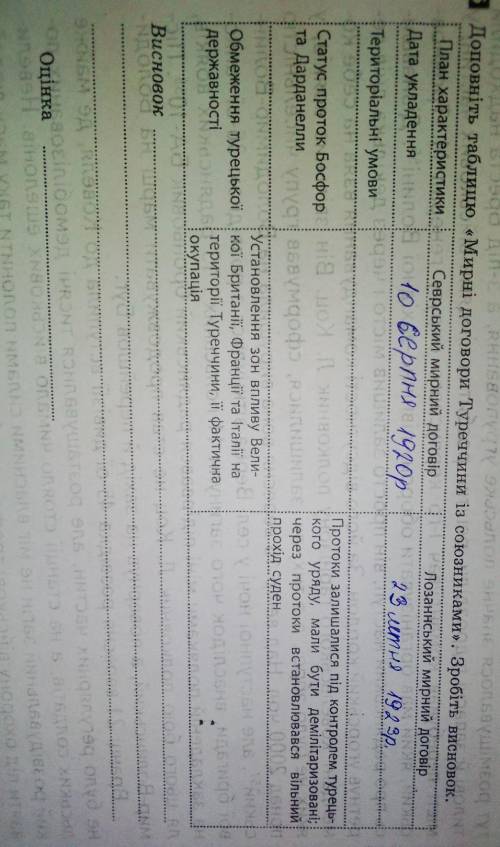 Доповніть таблицю «Мирні договори Туреччини із союзниками». Зробіть висновок.
План характеристики
Севрський мирний договір
Лозаннський мирний договір
Дата укладення
10 серпня 1920р
23 литня 1923р.
Територіальні умови
Статус проток Босфор
та Дарданелли
Протоки залишалися під контролем турець-
кого уряду, мали бути демілітаризовані;
через протоки встановлювався вільний
прохід суден
Обмеження турецької
державності
Установлення зон впливу Вели-
кої Британії, Франції та Італії на
території Туреччини, її фактична
окупація
Висновок
Оцінка